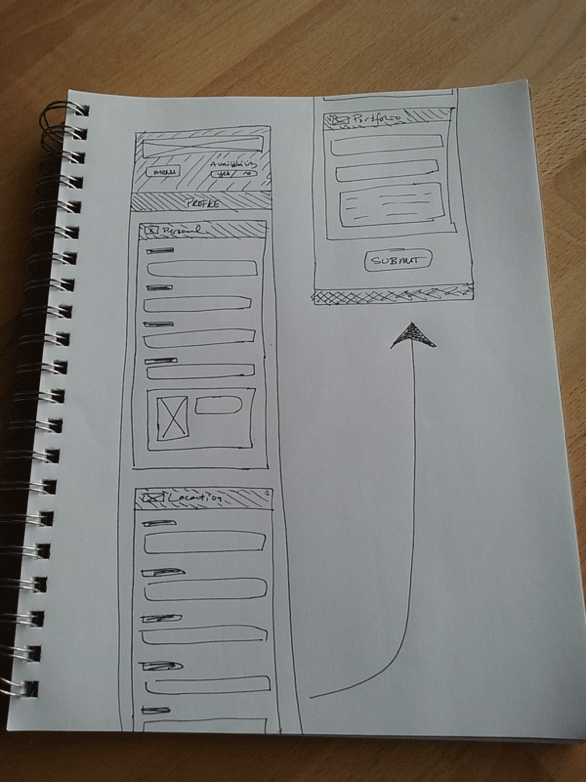 Availability
MENU
Yes/ no
PROFILE
Personal
Location
Portfolio
SUBMIT